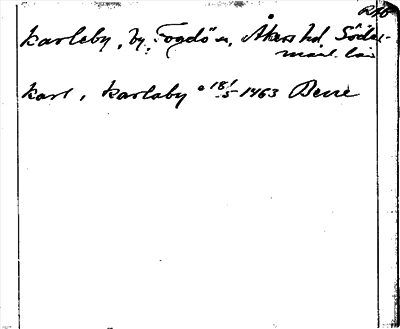 RAÖ
Karleby, by: Fogdö sn, Åkers hd Söder-
manl. län
Karl, Karlaby 18/5 1463 Beve